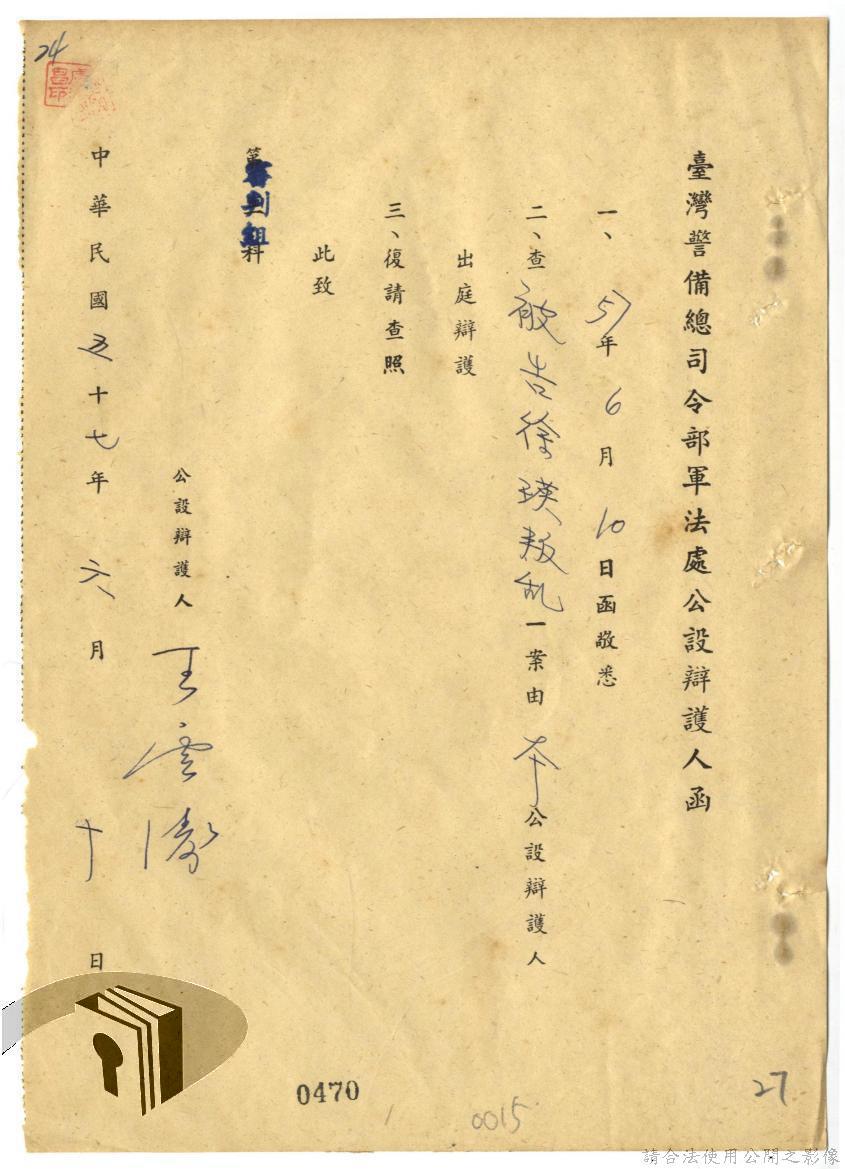 臺灣警備總司令部軍法處公設辯護人函
一、57年6月10日函敬悉
二、查被告徐瑛叛乱一案由本公設辯護人
出庭辯護
三、復請查照
此致
審判組
公設辯護人 王雲濤
中華民國五十七年六月十日
24
27
0470
0015
請合法使用公開之影像